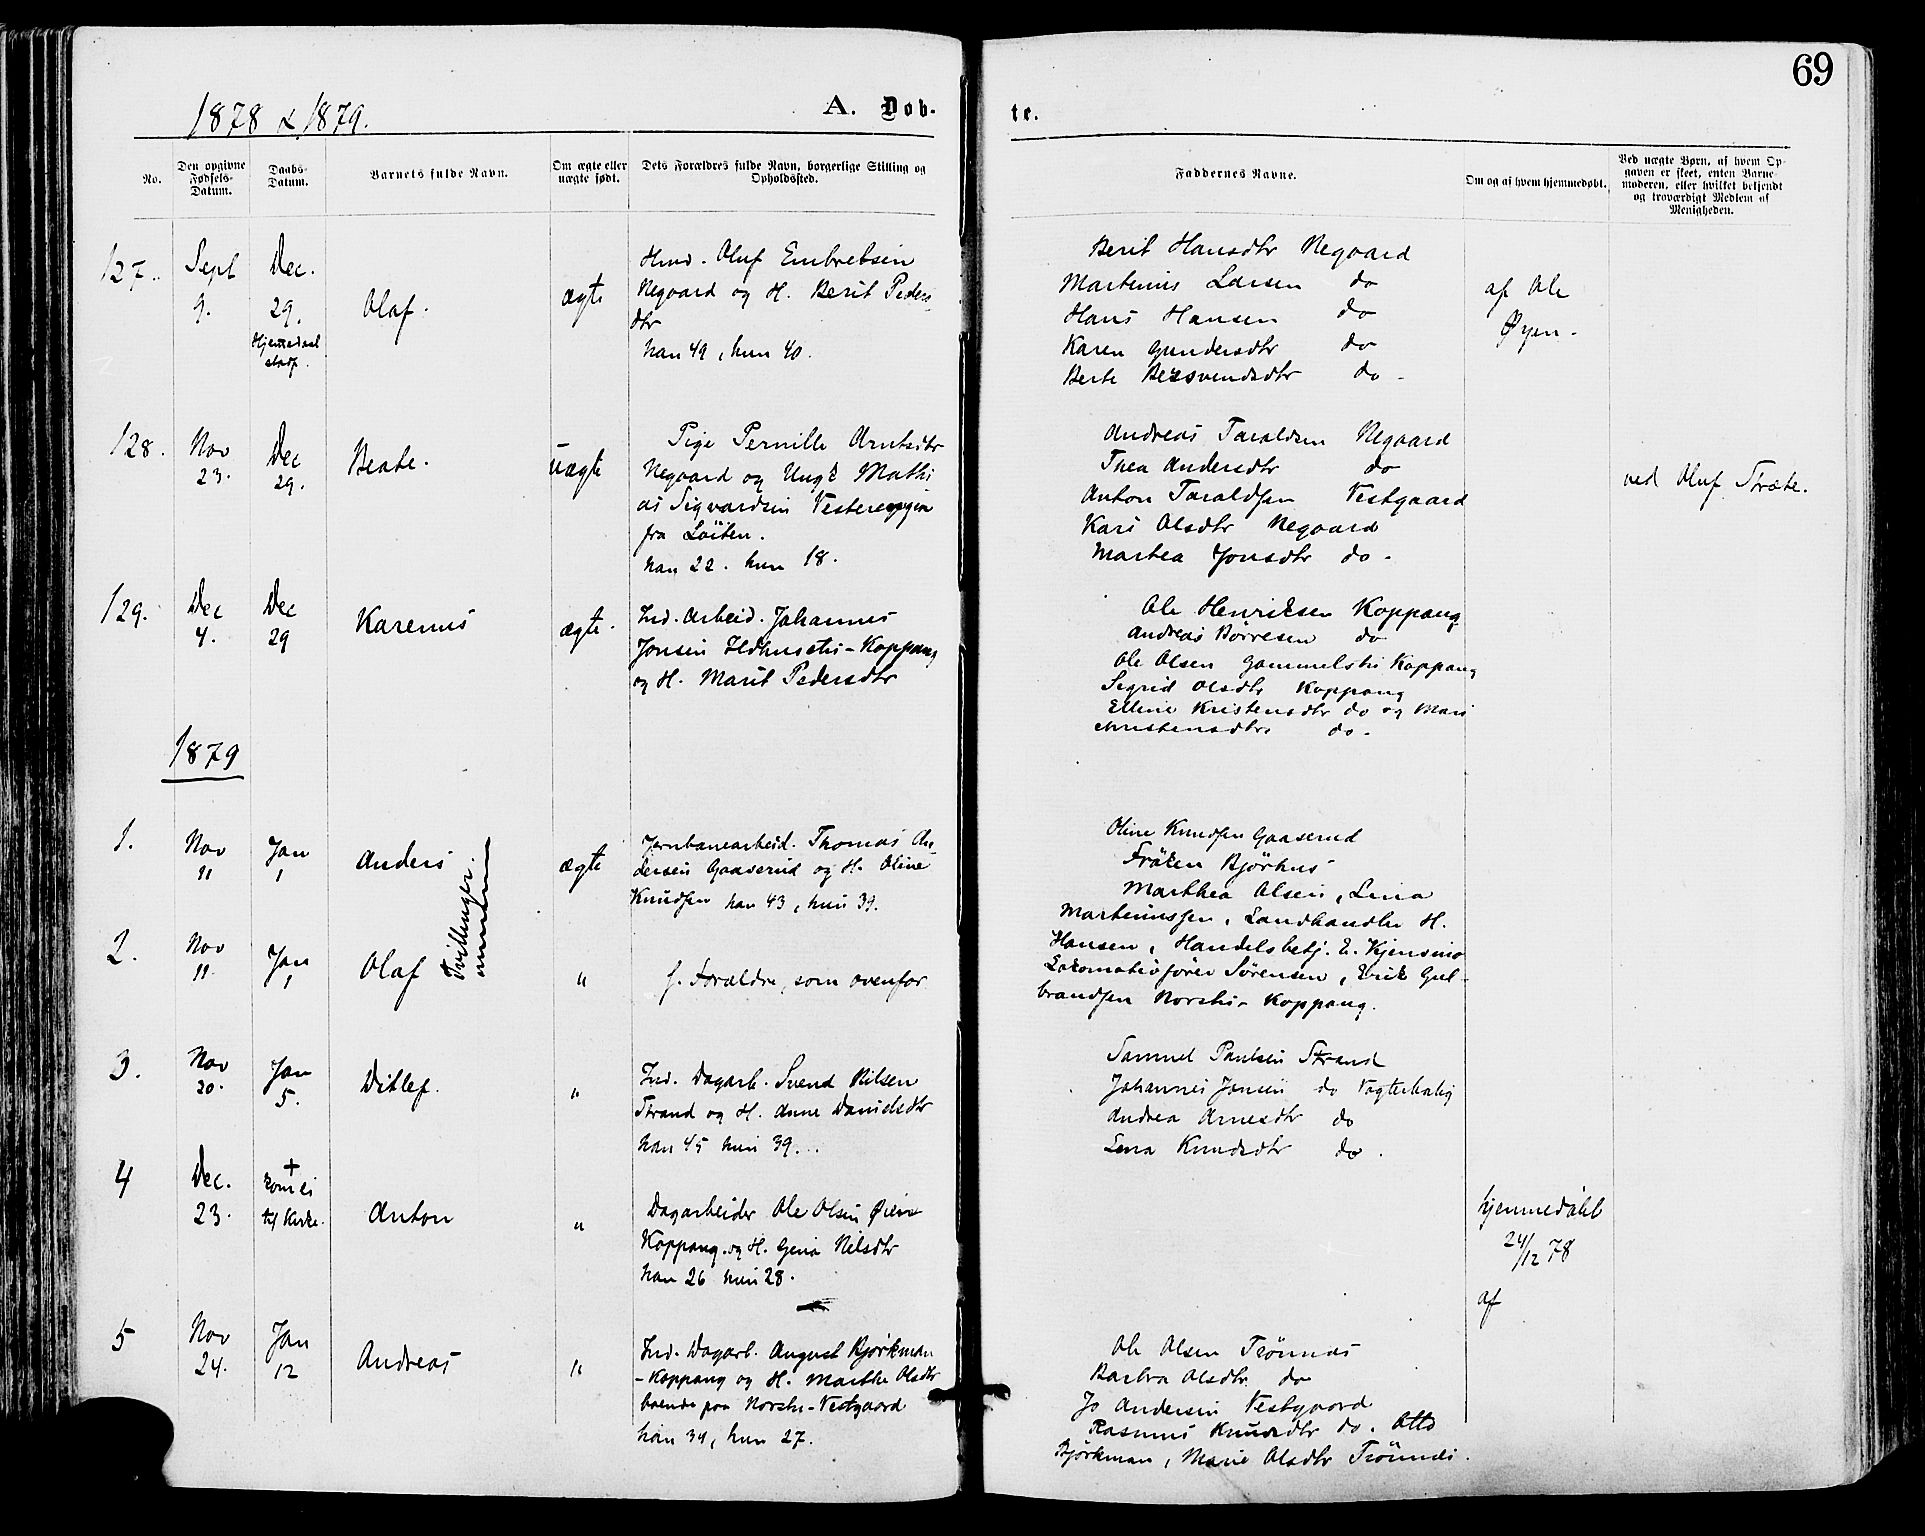 69
1878 & 1879.
A. Døb-
te.
No.
Den opgivne Fødsels-Datum.
Daabs-Datum.
Barnets fulde Navn.
Om ægte eller uægte født.
Dets Forældres fulde Navn, borgerlige Stilling og Opholdssted.
Faddernes Navne.
Om og af hvem hjemmedøbt.
Ved uægte Børn, af hvem Op-
gaven er skeet, enten Barne-
moderen, eller hvilket bekjendt
og troværdigt Medlem af
Menigheden.
127.
Sept
9.
Dec.
29.
Hjemedaab
stadf.
Olaf.
ægte
Hmd. Oluf Embretsen
Negaard og H. Berit Peders
dtr
han 49, hun 40.
Berit Hansdtr Negaard
Martinus Larsen do
Hans Hansen do
Karen Gundersdtr do
Berte Besvendsdtr do -
af Ole
Øyen.
128.
Nov
23.
Dec
29.
Beate.
uægte
Pige Pernille Arntsdtr
Negaard og Ungk Mathi
as Sigvardsen
fra Löiten.
han 22. hun 18.
Andreas Taraldsen Negaard
Thea Andersdtr do
Anton Taraldsen Vestgaard
Kari Olsdtr Negaard
Marthea Jonsdtr do -
ved Oluf Stræte.
129.
Dec
4.
Dec
29
Karenus
ægte.
Ind. Arbeid. Johannes
Jonsen - Koppang
og H. Marit Pedersdtr
Ole Henriksen Koppang
Andreas Börresen do
Ole Olsen Gammelstu Koppang
Sigrid Olsdtr Koppang
Elline Kristensdtr do og Mari
Christensdtr. do -
1879
1.
Nov
11
Jan
1
Anders
Tvillinger
ægte
Jernbanearbeid. Thomas An-
dersen Gaaserud og H. Oline
Knudsen han 43, hun 39.
Oline Knudsen Gaaserud
Fröken Bjørhus
Marthea Olsen, Lina
Martinussen, Landhandler H.
Hansen, Handelsbetj. E. Kjensmo
Lokomotivfører Sørensen, Erik Gul-
brandsen Norstu- Koppang.
2.
Nov
11.
Jan
1
Olaf
"
f. Forældre, som ovenfor
3.
Nov
20.
Jan
5.
Ditlef.
"
Ind. Dagarb. Svend Nilsen
Strand og H. Anne Danielsdtr
han 45 hun 39..
Samuel Paulsen Strand
Johannes Jonsen do Vagterbolig
Andrea Arnesdtr do
Lena Knudsdtr do.
4
Dec.
23.
+
kom ei
til Kirke.
Anton
"
Dagarbeider Ole Olsen Øien
Koppang. og H. Gina Nilsdtr
han 26 hun 28.
hjemmedöbt
24/12 78
af
5
Nov
24.
Jan
12
Andreas
"
Ind. Dagarb. August Bjørkman
- Koppang og H. Marthe Olsdtr
boende paa Norstu-Vestgaard
han 34, hun 27.
Ole Olsen Trönnes
Barbra Olsdtr do
Jo Andersen Vestgaard
Rasmus Knudsdtr do. Otto
Björkman, Marie Olsdtr Trönnes.